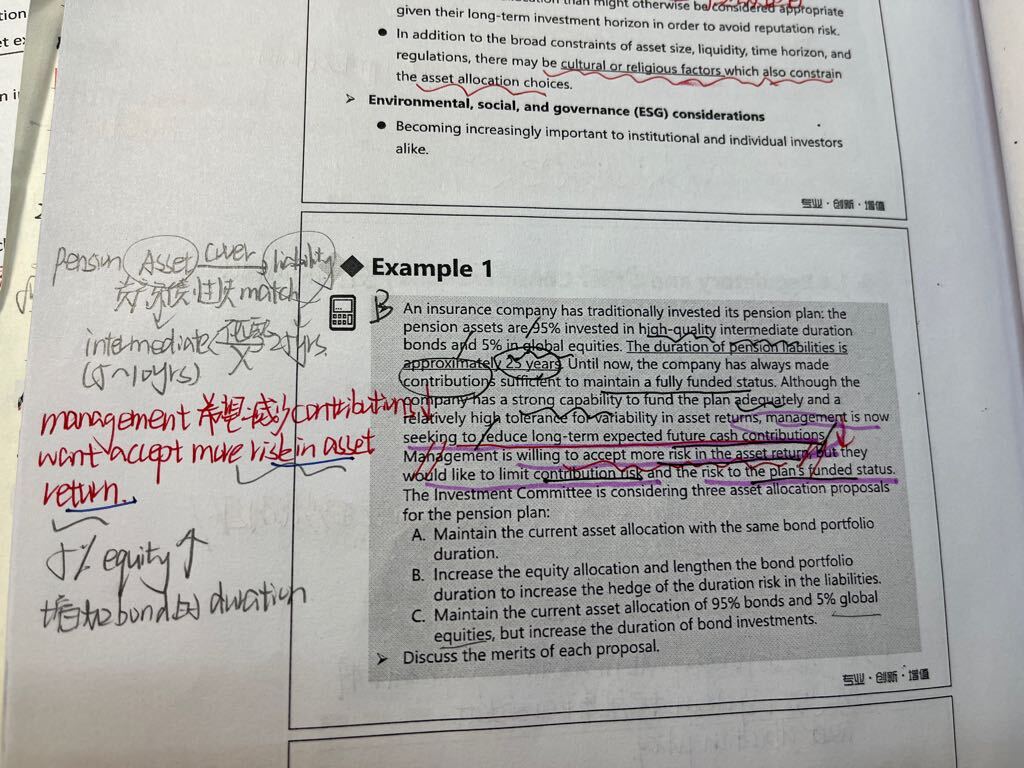 than might otherwise be considered appropriate
given their long-term investment horizon in order to avoid reputation risk.
● In addition to the broad constraints of asset size, liquidity, time horizon, and
regulations, there may be cultural or religious factors which also constrain
the asset allocation choices.
➢ Environmental, social, and governance (ESG) considerations
● Becoming increasingly important to institutional and individual investors
alike.
专业·创新·增值
pension Asset cover liability
match
intermediate 匹配 25yrs.
(5~10yrs) X
management 希望减少 contribution↓
want accept more risk in asset
return.
5% equity ↑
增加 bond 的 duration
◆ Example 1
B
An insurance company has traditionally invested its pension plan: the
pension assets are 95% invested in high-quality intermediate duration
bonds and 5% in global equities. The duration of pension liabilities is
approximately 25 years. Until now, the company has always made
contributions sufficient to maintain a fully funded status. Although the
company has a strong capability to fund the plan adequately and a
relatively high tolerance for variability in asset returns, management is now
seeking to reduce long-term expected future cash contributions.
Management is willing to accept more risk in the asset return, but they
would like to limit contribution risk and the risk to the plan's funded status.
The Investment Committee is considering three asset allocation proposals
for the pension plan:
A. Maintain the current asset allocation with the same bond portfolio
duration.
B. Increase the equity allocation and lengthen the bond portfolio
duration to increase the hedge of the duration risk in the liabilities.
C. Maintain the current asset allocation of 95% bonds and 5% global
equities, but increase the duration of bond investments.
➢ Discuss the merits of each proposal.
专业·创新·增值